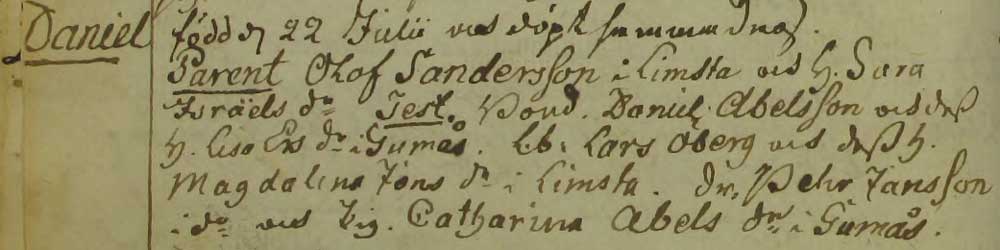 Daniel född d 22 Julii och döpt samma dag.
Parent Olof Sandersson i Kimsta och H. Sara
Israels dr Test. Bond. Daniel Abelsson och dess
H. Lisa Ers dr i Gumås. Lars Öberg och dess H.
Magdalena Jöns dr i Kimsta. Dr. Pehr Jansson
i do och Pig. Catharina Abels dr i Gumås.